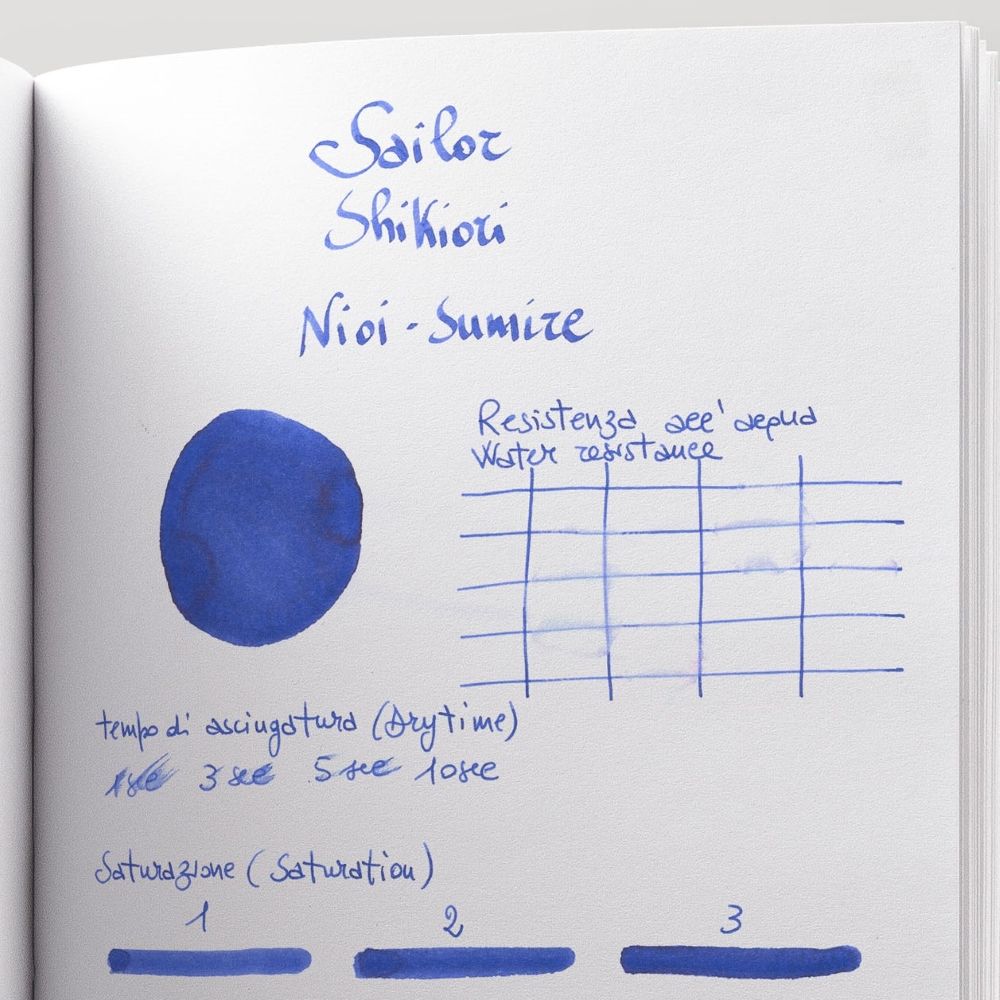 Sailor
Shikiori
Nioi-Sumire
Resistenza all'acqua
Water resistance
tempo di asciugatura (Drytime)
1sec 3 sec 5 sec 10sec
Saturazione (Saturation)
1 2 3